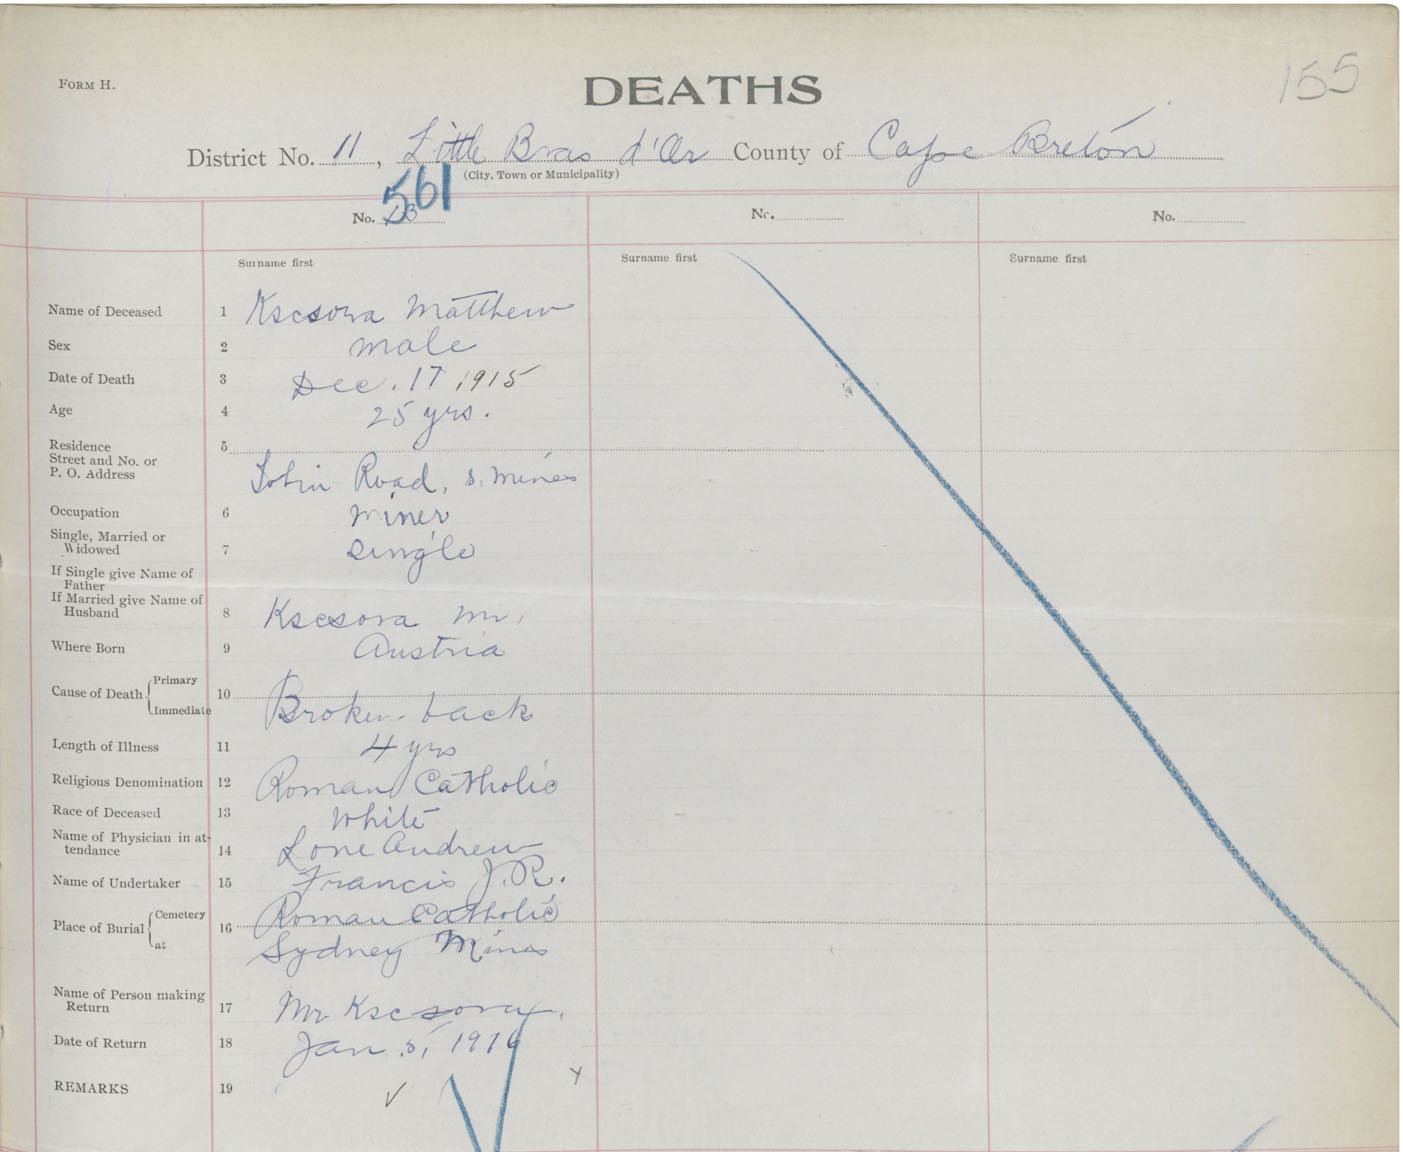 155
FORM H.
DEATHS
District No. 11, Little Bras d'Or County of Cape Breton
(City, Town or Municipality)
561
No. No. No.
Surname first Surname first Surname first
Name of Deceased 1 Kscsova Matthew
Sex 2 male
Date of Death 3 Dec. 17 1915
Age 4 25 yrs.
Residence 5
Street and No. or
P. O. Address Tobin Road, S. Mines
Occupation 6 miner
Single, Married or
Widowed 7 single
If Single give Name of
Father
If Married give Name of
Husband 8 Kscsova Mr.
Where Born 9 Austria
Cause of Death Primary
10
Immediate Broken back
Length of Illness 11 4 yrs
Religious Denomination 12 Roman Catholic
Race of Deceased 13 White
Name of Physician in at-
tendance 14 Lone Andrew
Name of Undertaker 15 Francis J. R.
Place of Burial Cemetery 16 Roman Catholic
at Sydney Mines
Name of Person making
Return 17 Mr Kscsova.
Date of Return 18 Jan 5, 1916
REMARKS 19